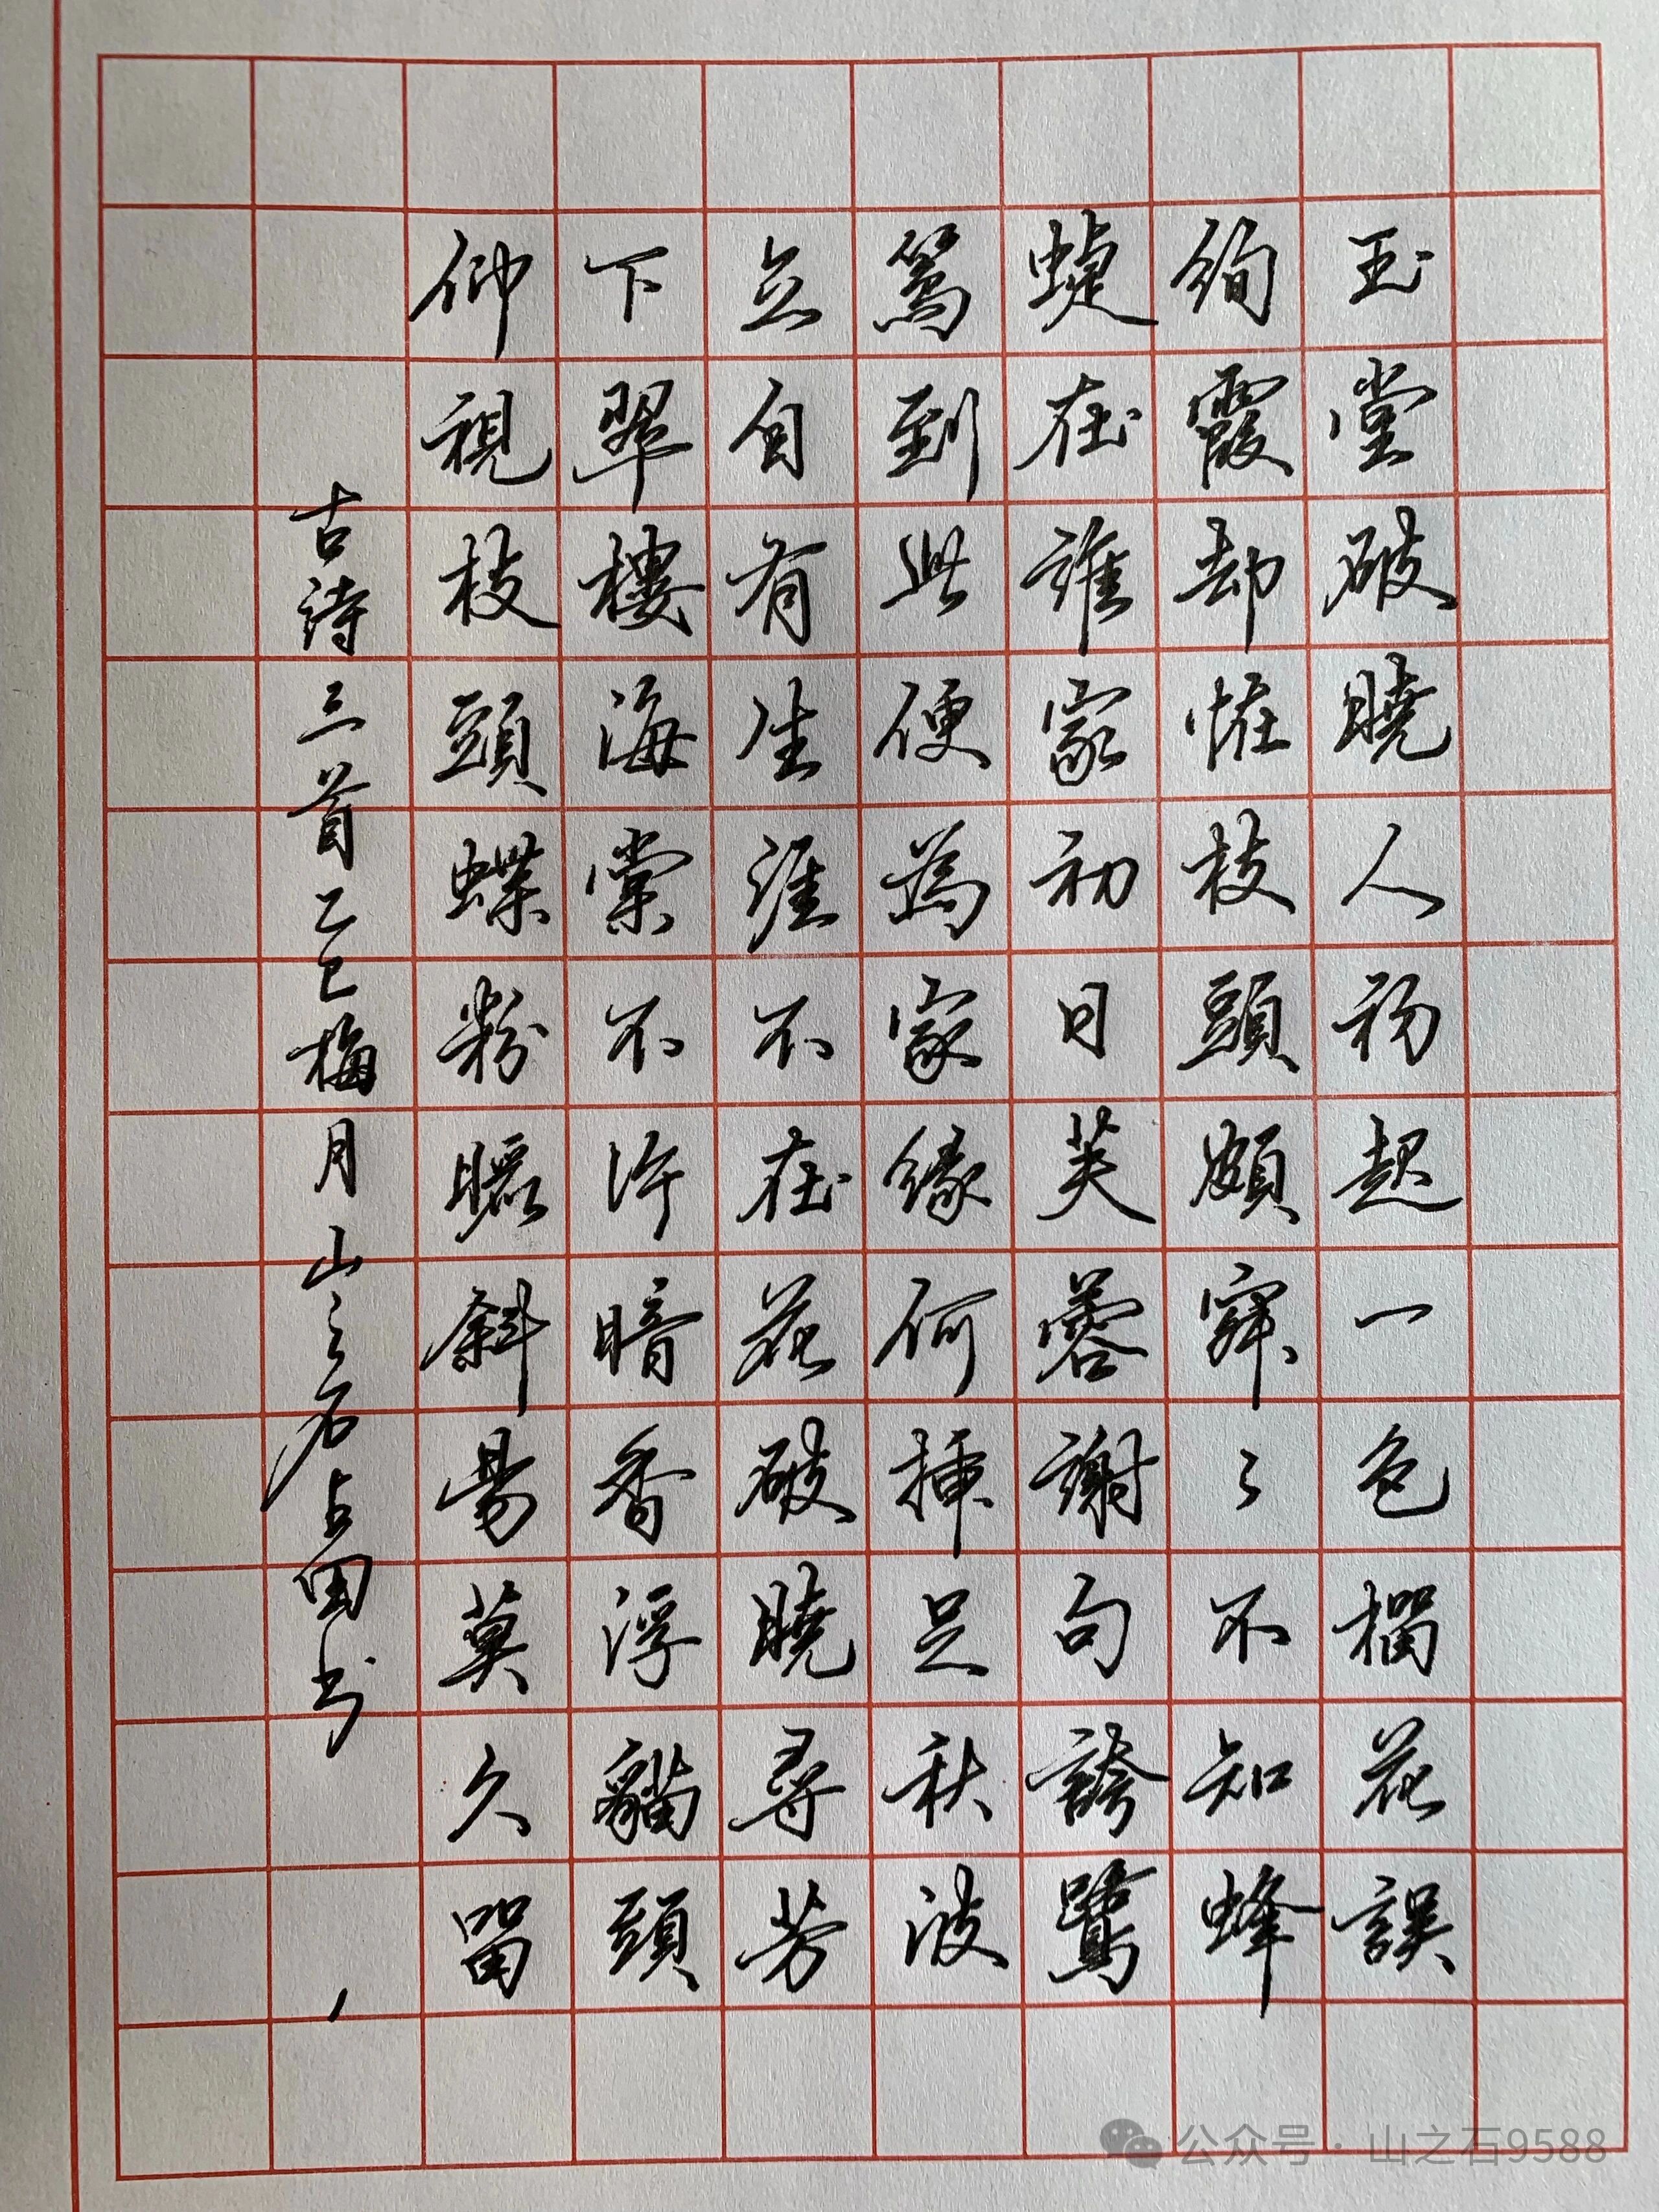 玉堂破曉人初起一色榴花誤
絢霞却怪枝頭頗寂〻不知蜂
蜨在誰家初日芙蓉謝句誇鷺
鷥到此便為家緣何插足秋波
立自有生涯不在花破曉尋芳
下翠樓海棠不許暗香浮貓頭
仰視枝頭蝶粉曬斜陽莫久留
古詩三首乙巳梅月山之石占田书
公众号·山之石9588